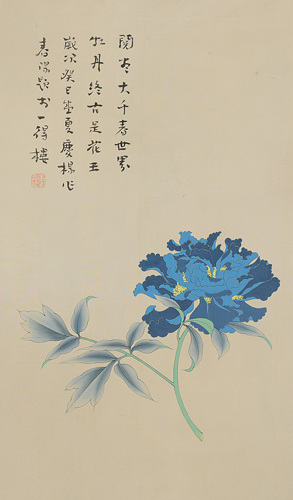 閱盡大千春世界
牡丹終古是花王
歲次癸巳孟夏慶楊作
春深題於一得樓